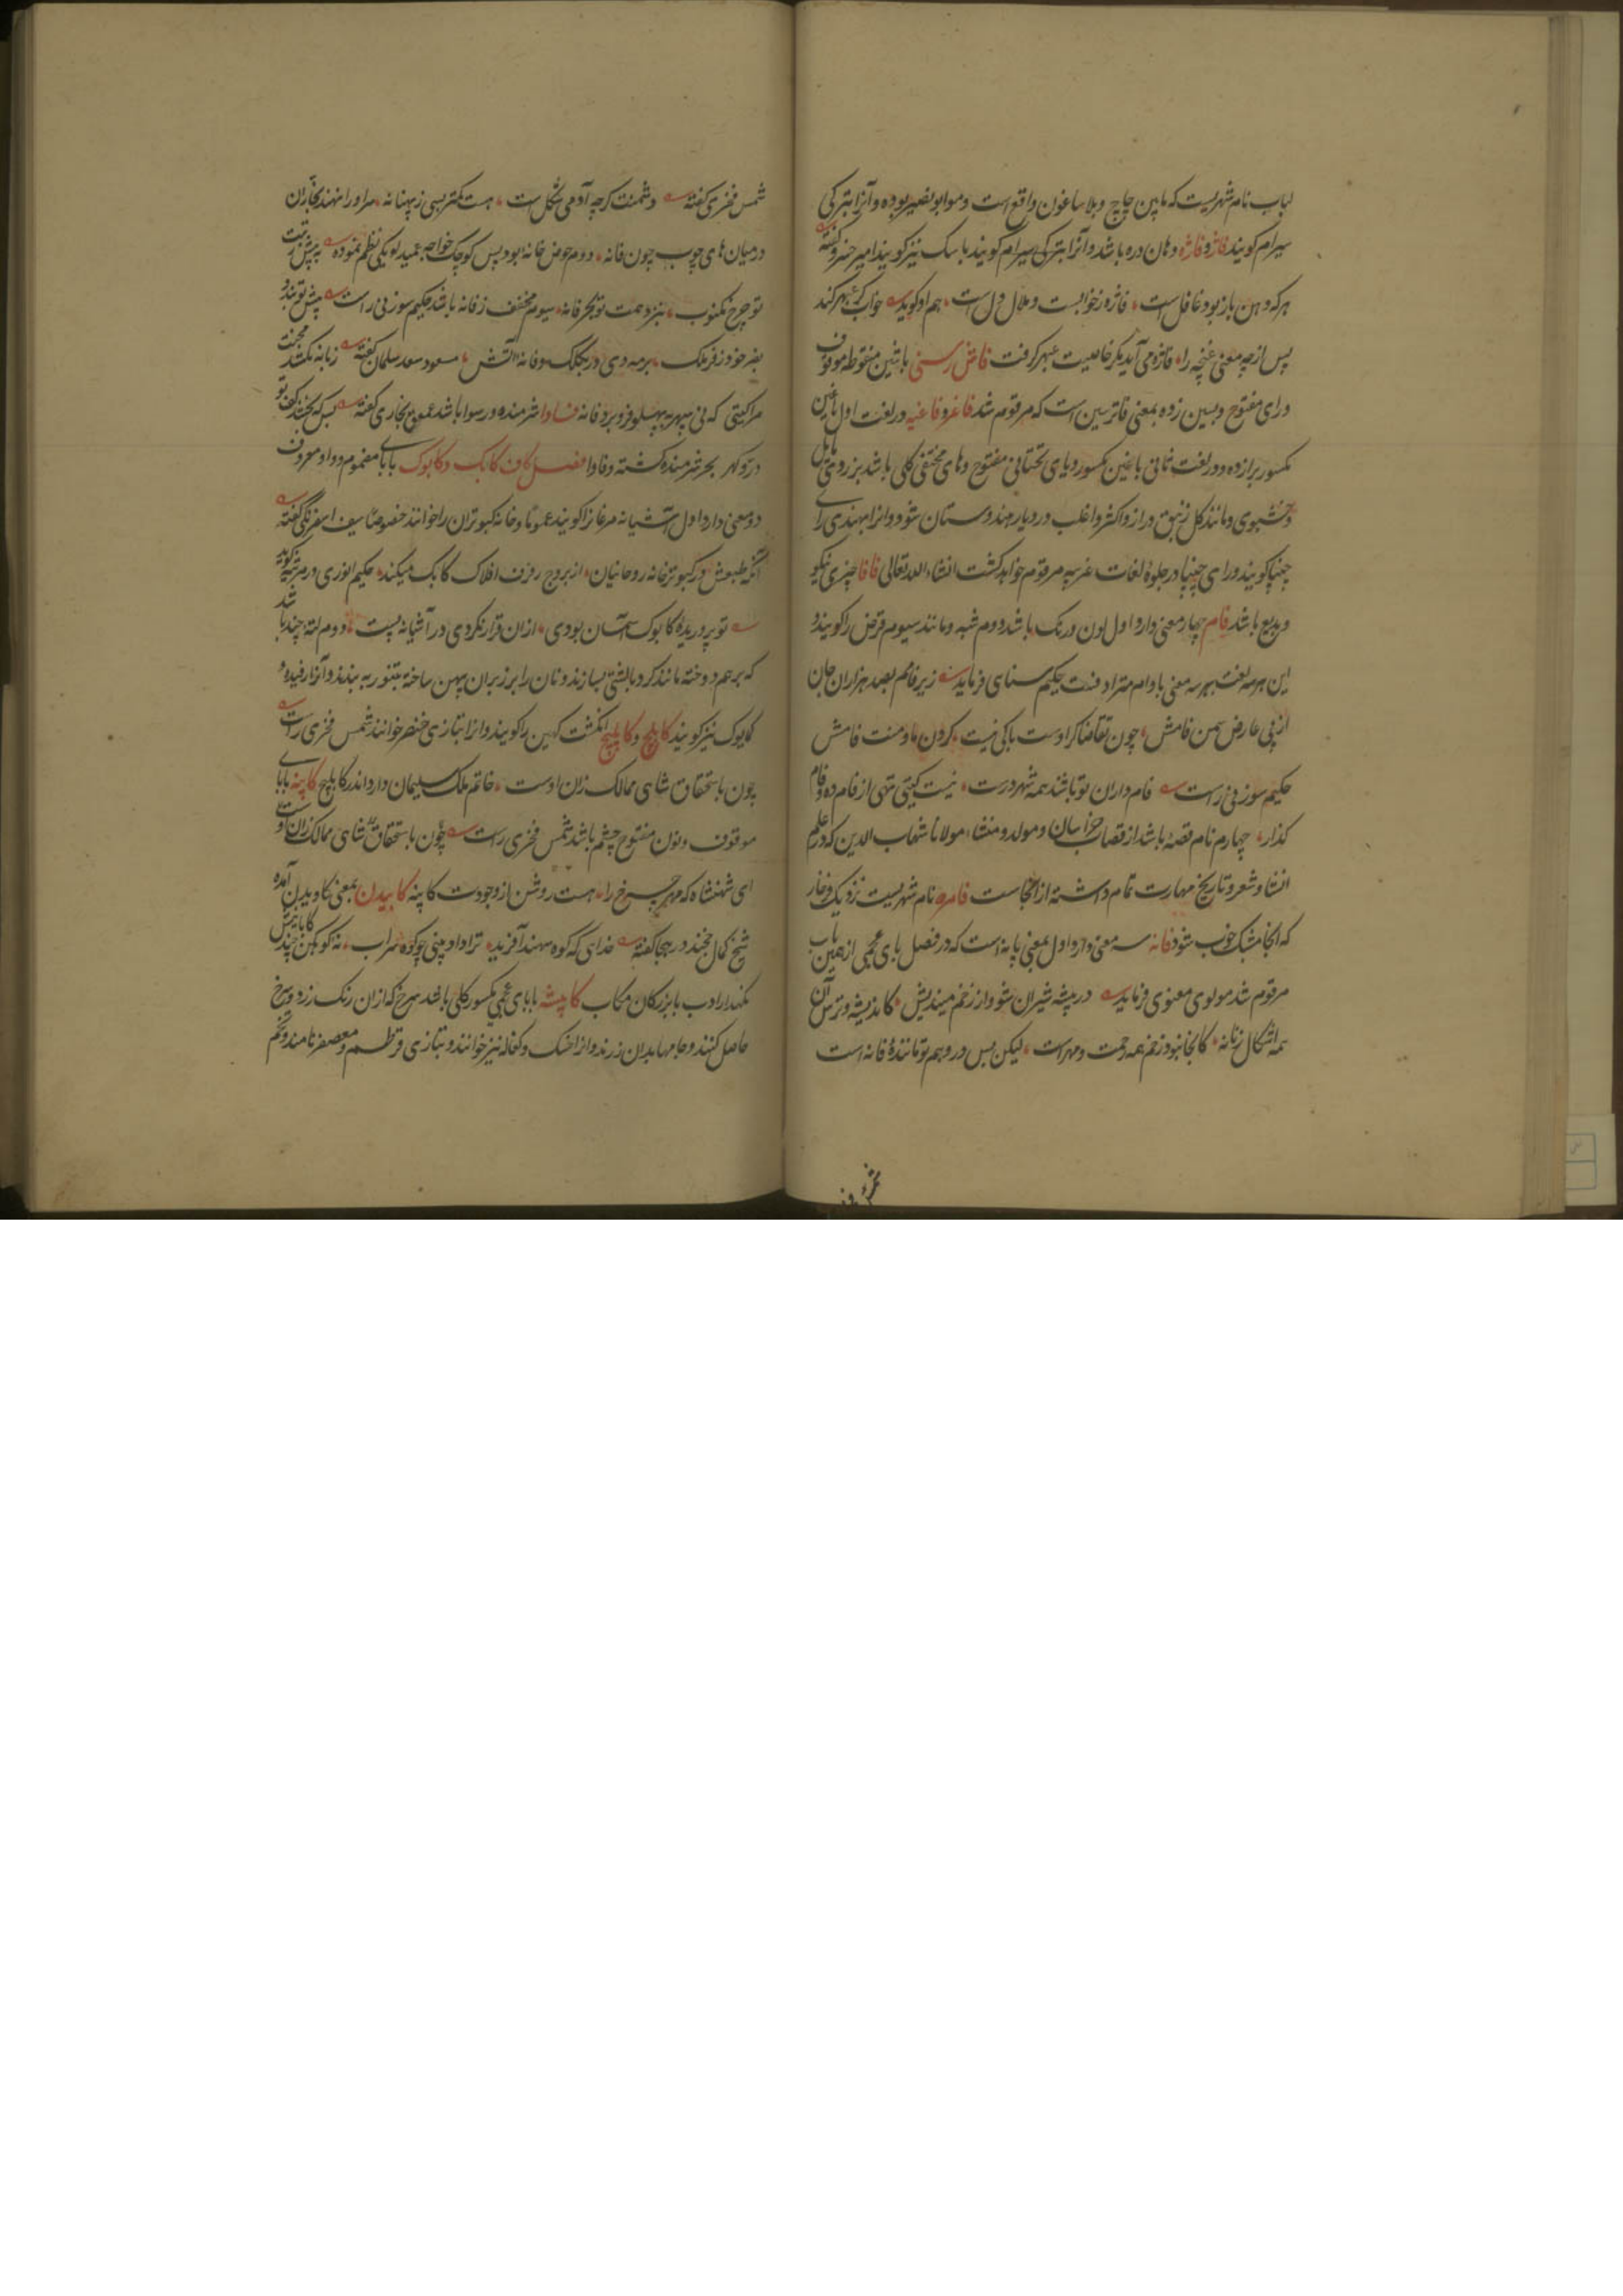 لباب نام شهریست که مابین چاچ و بلاساغون واقع است و مولد ابونصیر بوده و آنرا بترکی
سیرام کویند فاژ و فاژه دهان دره باشد و آنرا بترکی سیرام کویند باسک نیز کویند امیر خسرو گفته
هرکه دهن باز بود غافل است فاژه ز خوابست و ملال دل است هم او کوید خواب کر عبهر کند
پس از چه معنی غنچه را فاژه می آید یکر خاصیت عبهر کرفت باشین منقوطه موقوف
و رای مفتوح و بسین زده بمعنی فاترسین است که مرقوم شد فاغر و فاغیه در لغت اول باغین
مکسور برا زده و در لغت ثانی باغین مکسور و یای تحتانی مفتوح و های مختفی کلی باشد بزردی مایل
و خوشبوی و مانند کل زنبق دراز و اکثر و اغلب در دیار هندوستان شود و انرا بهندی رای
چنپا کویند و رای چنپا در جلوهٔ لغات غریبه مرقوم خواهد کشت انشاء الله تعالی فافا چیزی نیکو
و بدیع باشد فام چهار معنی دارد اول لون و رنک باشد دوم شبه و مانند سیوم قرض را کویند و
این هر سه لغت بهر سه معنی با وام مترادفست حکیم سنای فرماید زیر فامم بصد هزاران جان
از پی عارض سمن فامش چون تقاضاکر اوست باکی نیست کردن ما و منت فامش
حکیم سوزنی راست فام داران تو باشند همه شهر درست نیست کیتی تهی از فام ده و فام
کذار چهارم نام قصبهٔ باشد از قصبات خراسان و مولد و منشاء مولانا شهاب الدین که در علم
انشا و شعر و تاریخ مهارت تمام داشته از انجاست فامره نام شهریست نزدیک
که انجا مشک خوب شود فانه سه معنی دارد اول بمعنی پانه است که در فصل بای عجمی از همین باب
مرقوم شد مولوی معنوی فرماید در بیشه شیران شو و از زخم میندیش کاندیشه و ترس آن
همه اشکال زنانه کانجا نبود زخم همه رحمت و مهر است لیکن پس در وهم تو مانندهٔ فانه است
شمس فخری گفته دشمنت کرچه آدمی شکل است هست کمتر بسی ز پهنانه مر او را نهند نجاران
در میان های چوب چون فانه دوم حوض خانه بود پس کوچک خواجه عمید لویکی نظم نموده
تو چرخ نیز همت تو بحر فانه سیوم مخفف زفانه باشد حکیم سوزنی راست
مسعود سعد سلمان گفته
مر آکیتی که نی سپهر به پهلو فرو برد فانه فساوا شرمنده و رسوا باشد عمعق بخاری گفته
در و کهر بحر شرمنده کشته و فاوا فصل کاف کابک و کابوک با بای مضموم و واو معروف
دو معنی دارد اول آشیانه مرغانرا کویند عموما و خانه کبوتران را خوانند خصوصا سیف اسفرنگی گفته
آنکه طبعش در کبوترخانه روحانیان از بروج رفرف افلاک کابک میکند حکیم انوری در مرثیه کوید
تو پروریدهٔ کابوک آسمان بودی ازان قرار نکردی در آشیانه پست دوم لتهٔ چند باشد
که بر هم دوخته مانند کرد بالشتی بسازند و نان را بر زبر آن پهن ساخته بتنور به بندند و آنرا رفیده و
کابوک نیز کویند کابلج و کابلیج انکشت کهین را کویند و انرا بتازی خنصر خوانند شمس فخری راست
چون باستحقاق شاهی ممالک زان اوست خاتم ملک سلیمان دارد اندر کابلج کابنه با بای
موقوف و نون مفتوح چشم باشد شمس فخری راست چون باستحقاق شاهی ممالک زان اوست
ای شهنشاه که مهر چرخ را هست روشن از وجودت کابنه کابیدن بمعنی کاویدن آمده
شیخ کمال خجند در هجا گفته خدای که کوه سهند آفریده ترا داد بینی چو کوه سراب نه کوهکن چند کابایتش
نکهدار ادب با بزرکان مکاب کابیشه با بای عجمی مکسور کلی باشد سرخ که ازان رنک زرد و سرخ
حاصل کنند و جامها بدان رزند و انرا خسک و کغاله نیز خوانند و بتازی قرطم و معصفر نامند و تخم